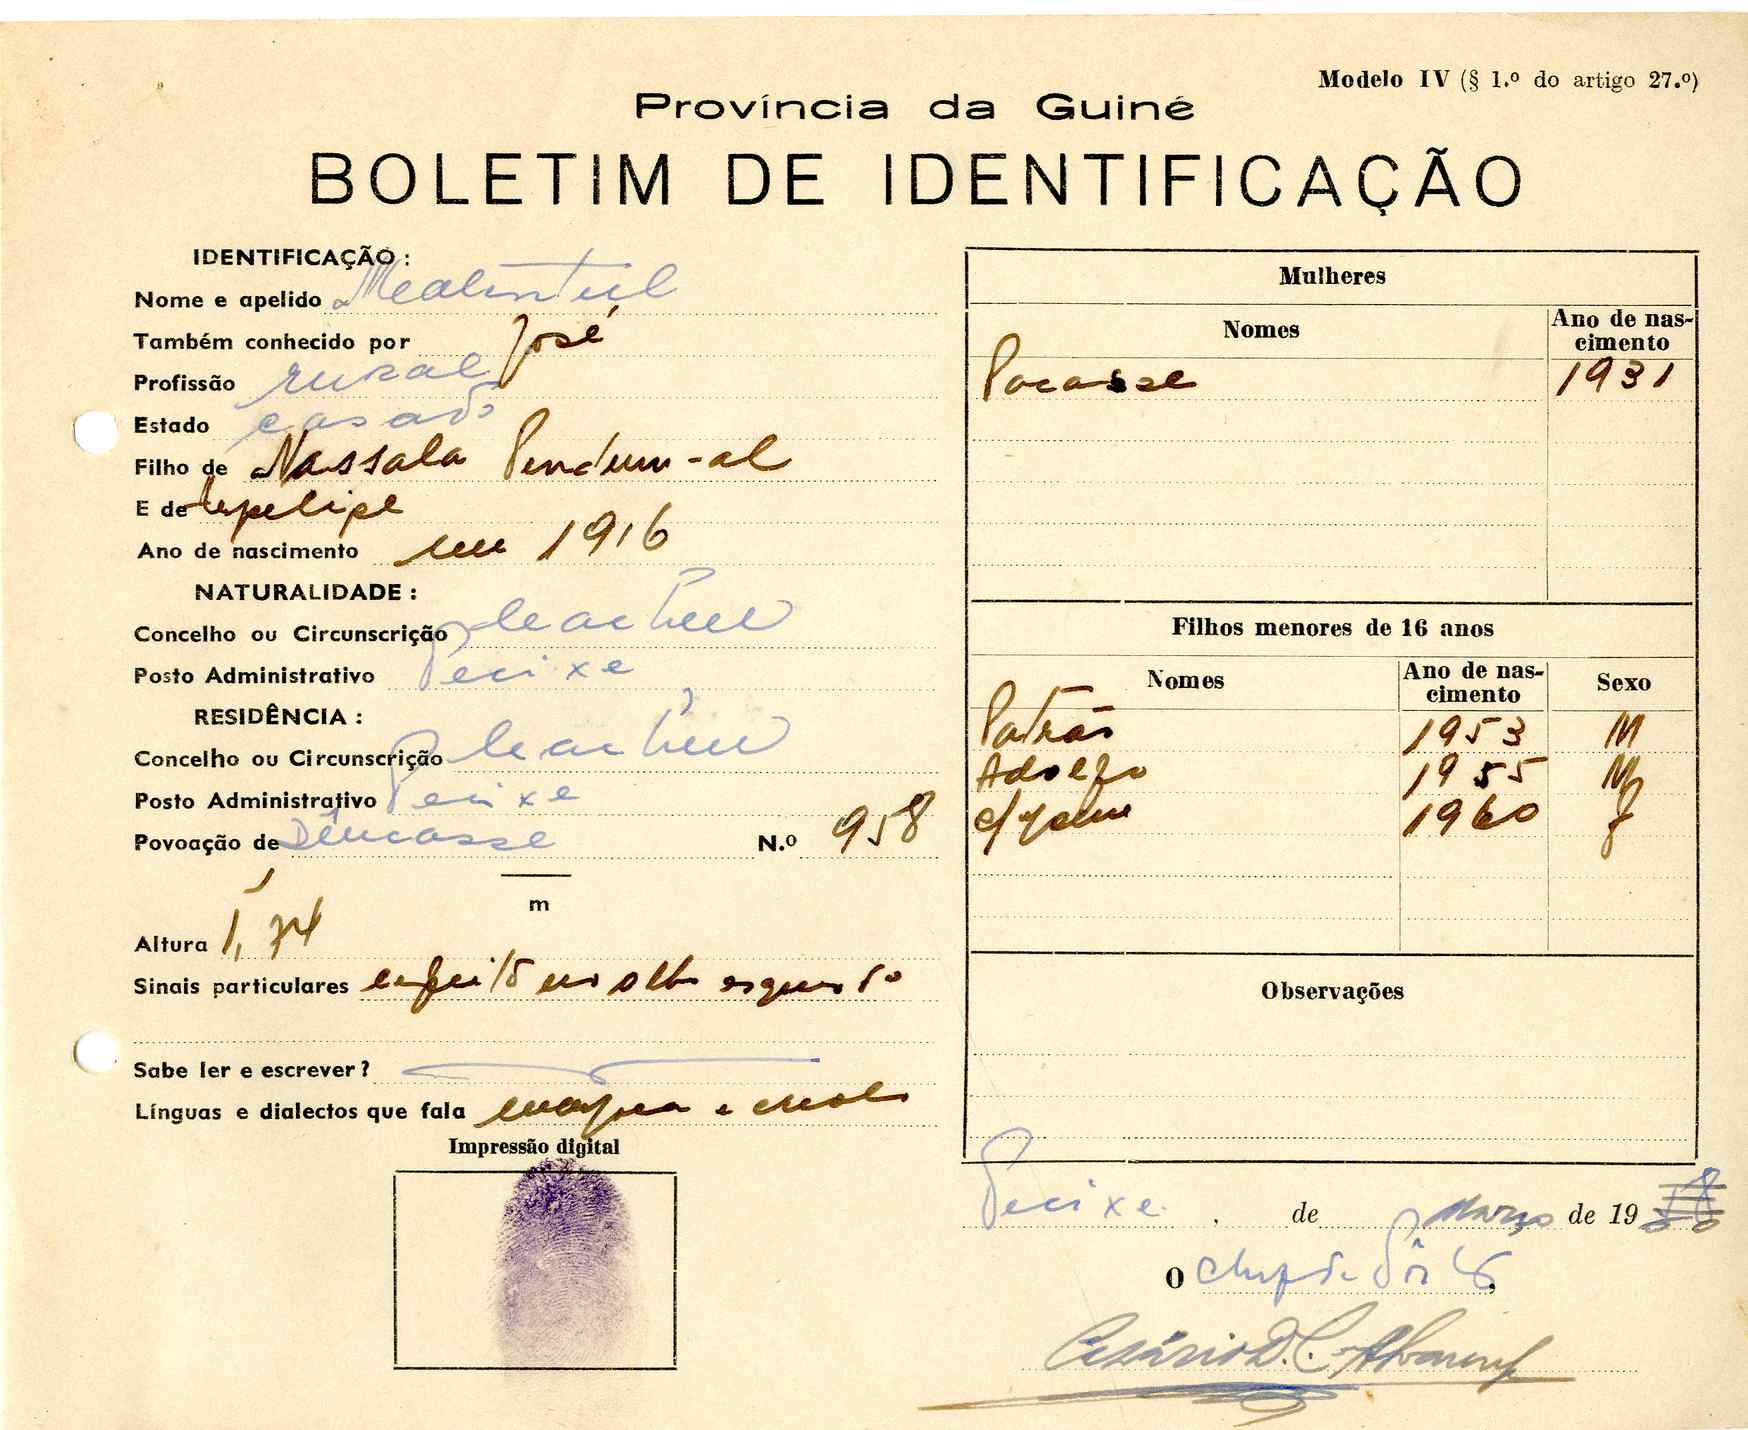 Modelo IV (§ 1.º do artigo 27.º)
Província da Guiné
BOLETIM DE IDENTIFICAÇÃO
IDENTIFICAÇÃO :
Nome e apelido
Também conhecido por José
Profissão rural
Estado casado
Filho de Nassala
E de
Ano de nascimento em 1916
NATURALIDADE :
Concelho ou Circunscrição Cacheu
Posto Administrativo Pecixe
RESIDÊNCIA :
Concelho ou Circunscrição Cacheu
Posto Administrativo Pecixe
Povoação de N.º 958
m
Altura 1,74
Sinais particulares no olho esquerdo
Sabe ler e escrever?
Línguas e dialectos que fala e
Impressão digital
Mulheres
Nomes Ano de nas-
cimento
Pocasse 1931
Filhos menores de 16 anos
Nomes Ano de nas-
cimento Sexo
Patrão 1953 M
Adolfo 1955 M
1960 f
Observações
Pecixe, de Março de 19
O Chefe de Pôsto,
Cesário D. C.